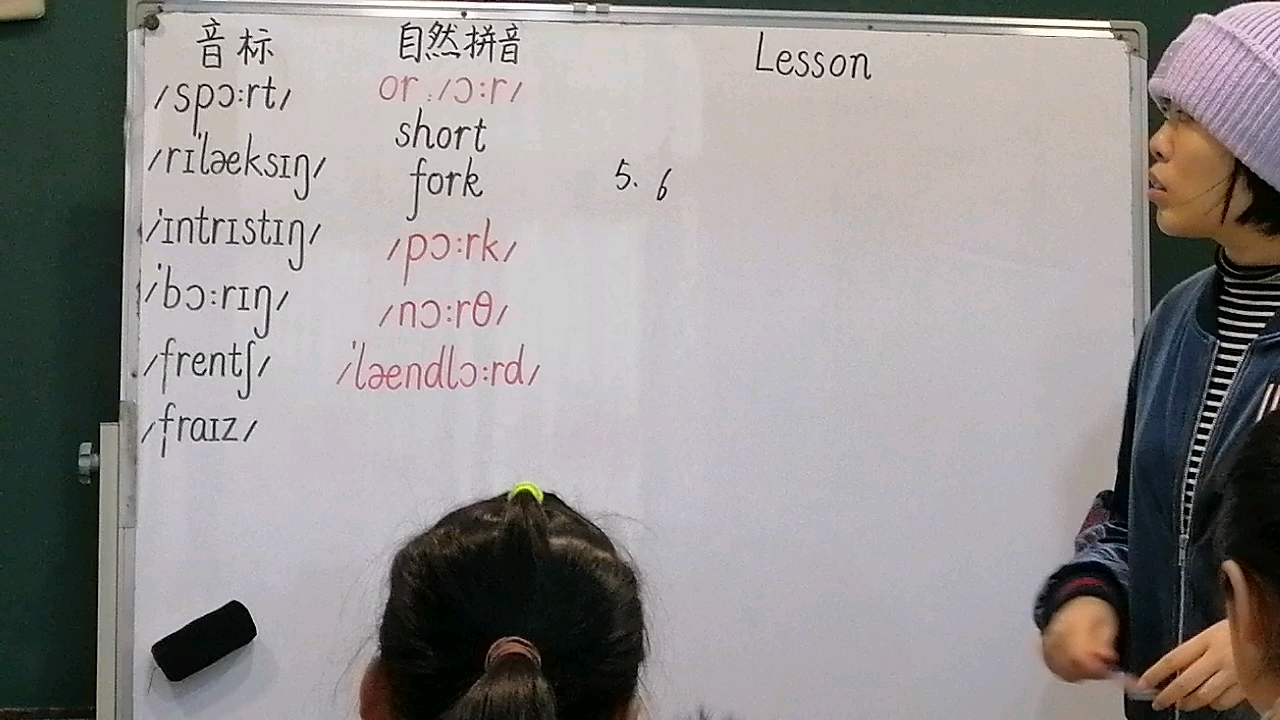 音标
/spɔ:rt/
/rɪˈlæksɪŋ/
/ˈɪntrɪstɪŋ/
/ˈbɔ:rɪŋ/
/frentʃ/
/fraɪz/
自然拼音
or : /ɔ:r/
short
fork
/pɔ:rk/
/nɔ:rθ/
/ˈlændlɔ:rd/
5. 6
Lesson